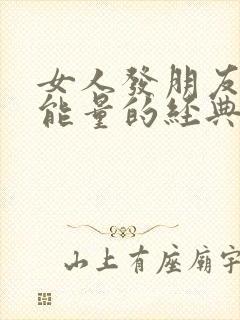 女人發朋友
能量的經典
山上有座廟宇